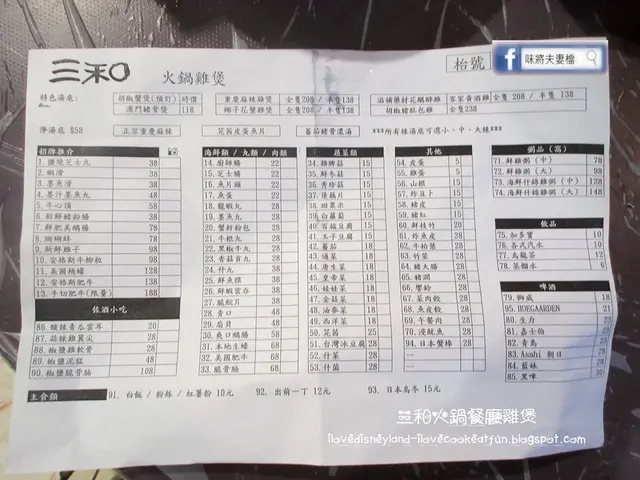 味將夫妻檔
三和
火鍋雞煲
枱號
特色湯底:
胡椒蟹煲(預訂) 時價
重慶麻辣雞煲 全隻208 / 半隻138
客家黃酒雞 全隻 208 / 半隻 138
澳門豬骨煲 118
椰子花蟹雞煲 全隻208 / 半隻138
胡椒豬肚雞 全隻238
淨湯底 $58
正宗重慶麻辣
芫茜皮蛋魚片
蕃茄豬骨濃湯
***所有辣湯底可選小、中、大辣***
招牌推介
1. 鹽燒芝士丸 38
2. 蝦滑 38
3. 墨魚滑 38
4. 墨汁墨魚丸 48
5. 牛心頂 58
6. 新鮮豬粉腸 38
7. 鮮肥美鵝腸 78
8. 珊瑚蚌 78
9. 新鮮雞子 98
10. 安格斯牛柳粒 98
11. 美國桶蠔 128
12. 安格斯肥牛 138
13. 手切肥牛(限量) 188
佐酒小吃
86. 酸辣青瓜雲耳 20
87. 蒜辣雞翼尖 28
88. 椒鹽雞軟骨 28
89. 椒鹽泥鯭 48
90. 椒鹽脆骨腩 108
海鮮類 / 丸類 / 肉類
14. 廚師腸 22
15. 芝士腸 22
16. 魚片頭 22
17. 魚蛋 22
18. 龍蝦丸 28
19. 墨魚丸 28
20. 蟹籽粉包 28
21. 牛根丸 28
22. 黑椒牛丸 28
23. 香菇貢丸 28
24. 什丸 38
25. 鮮魚條 38
26. 鮮蝦雲吞 38
27. 脆鯇片 38
28. 青口 48
29. 扇貝 48
30. 爽口鵪腸 58
31. 本地生蠔 68
32. 美國肥牛 68
33. 脆骨腩 68
蔬菜類
34. 雞脾菇 15
35. 鮮冬菇 15
36. 秀珍菇 15
37. 蓮藕片 15
38. 甜粟米 15
39. 白蘿蔔 15
40. 百福豆腐 15
41. 玉子豆腐 15
42. 蕃茄 18
43. 通菜 18
44. 唐生菜 18
45. 皇帝菜 18
46. 娃娃菜 18
47. 金菇菜 18
48. 油麥菜 18
49. 西洋菜 18
50. 芫茜 25
51. 台灣冰豆腐 28
52. 什菜 28
53. 什菌 28
其他
54. 皮蛋 5
55. 雞蛋 5
56. 山根 15
57. 炸豆卜 15
58. 豬皮 15
59. 豬紅 15
60. 鮮枝竹 20
61. 炸魚皮 28
62. 牛柏葉 28
63. 竹笙 28
64. 豬大腸 28
65. 豬潤 28
66. 響鈴 28
67. 菜肉餃 28
68. 魚皮餃 28
69. 午餐肉 28
70. 浸魷魚 28
94. 日本蟹棒 28
粥品(窩)
71. 鮮雞粥 (中) 78
72. 鮮雞粥 (大) 98
73. 海鮮什錦雞粥 (中) 128
74. 海鮮什錦雞粥 (大) 148
飲品
75. 加多寶 10
76. 各式汽水 10
77. 烏龍茶 12
78. 茶錢水 6
啤酒
79. 獅威 18
95. HOEGAARDEN 21
80. 生力 23
81. 嘉士伯 23
82. 青島 23
83. Asahi 朝日 23
84. 藍妹 23
85. 黑啤 30
主食類
91. 白飯 / 粉絲 / 紅薯粉 10元
92. 出前一丁 12元
93. 日本烏冬 15元
三和火鍋餐廳雞煲
ilovedisneyland-ilovecookeatfun.blogspot.com